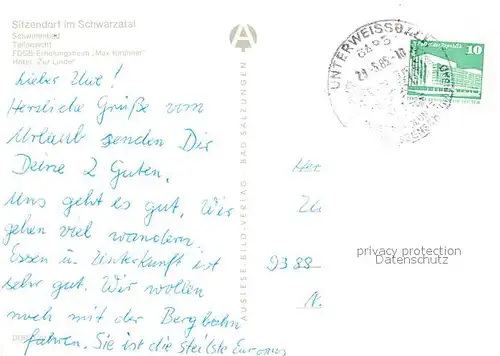 Sitzendorf im Schwarzatal
Schwimmbad
Teilansicht
FDGB-Erholungsheim „Max Kirchner"
Hotel „Zur Linde"
Lieber Uwe!
Herzliche Grüße vom
Urlaub senden Dir
Deine 2 Guten.
Uns geht es gut. Wir
gehen viel wandern.
Essen u. Unterkunft ist
sehr gut. Wir wollen
noch mit der Bergbahn
fahren. Sie ist die steilste Europas
AUSLESE BILD-VERLAG BAD SALZUNGEN
A
UNTERWEISSBACH
10
9388
privacy protection
Datenschutz